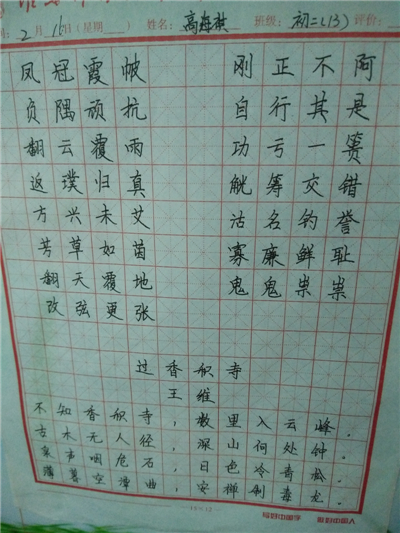 2月16日(星期 ) 姓名: 高海祺 班级: 初二(13) 评价:
凤冠霞帔 刚正不阿
负隅顽抗 自行其是
翻云覆雨 功亏一篑
返璞归真 觥筹交错
方兴未艾 沽名钓誉
芳草如茵 寡廉鲜耻
翻天覆地 鬼鬼祟祟
改弦更张
过香积寺
王维
不知香积寺,数里入云峰.
古木无人径,深山何处钟.
泉声咽危石,日色冷青松.
薄暮空潭曲,安禅制毒龙.